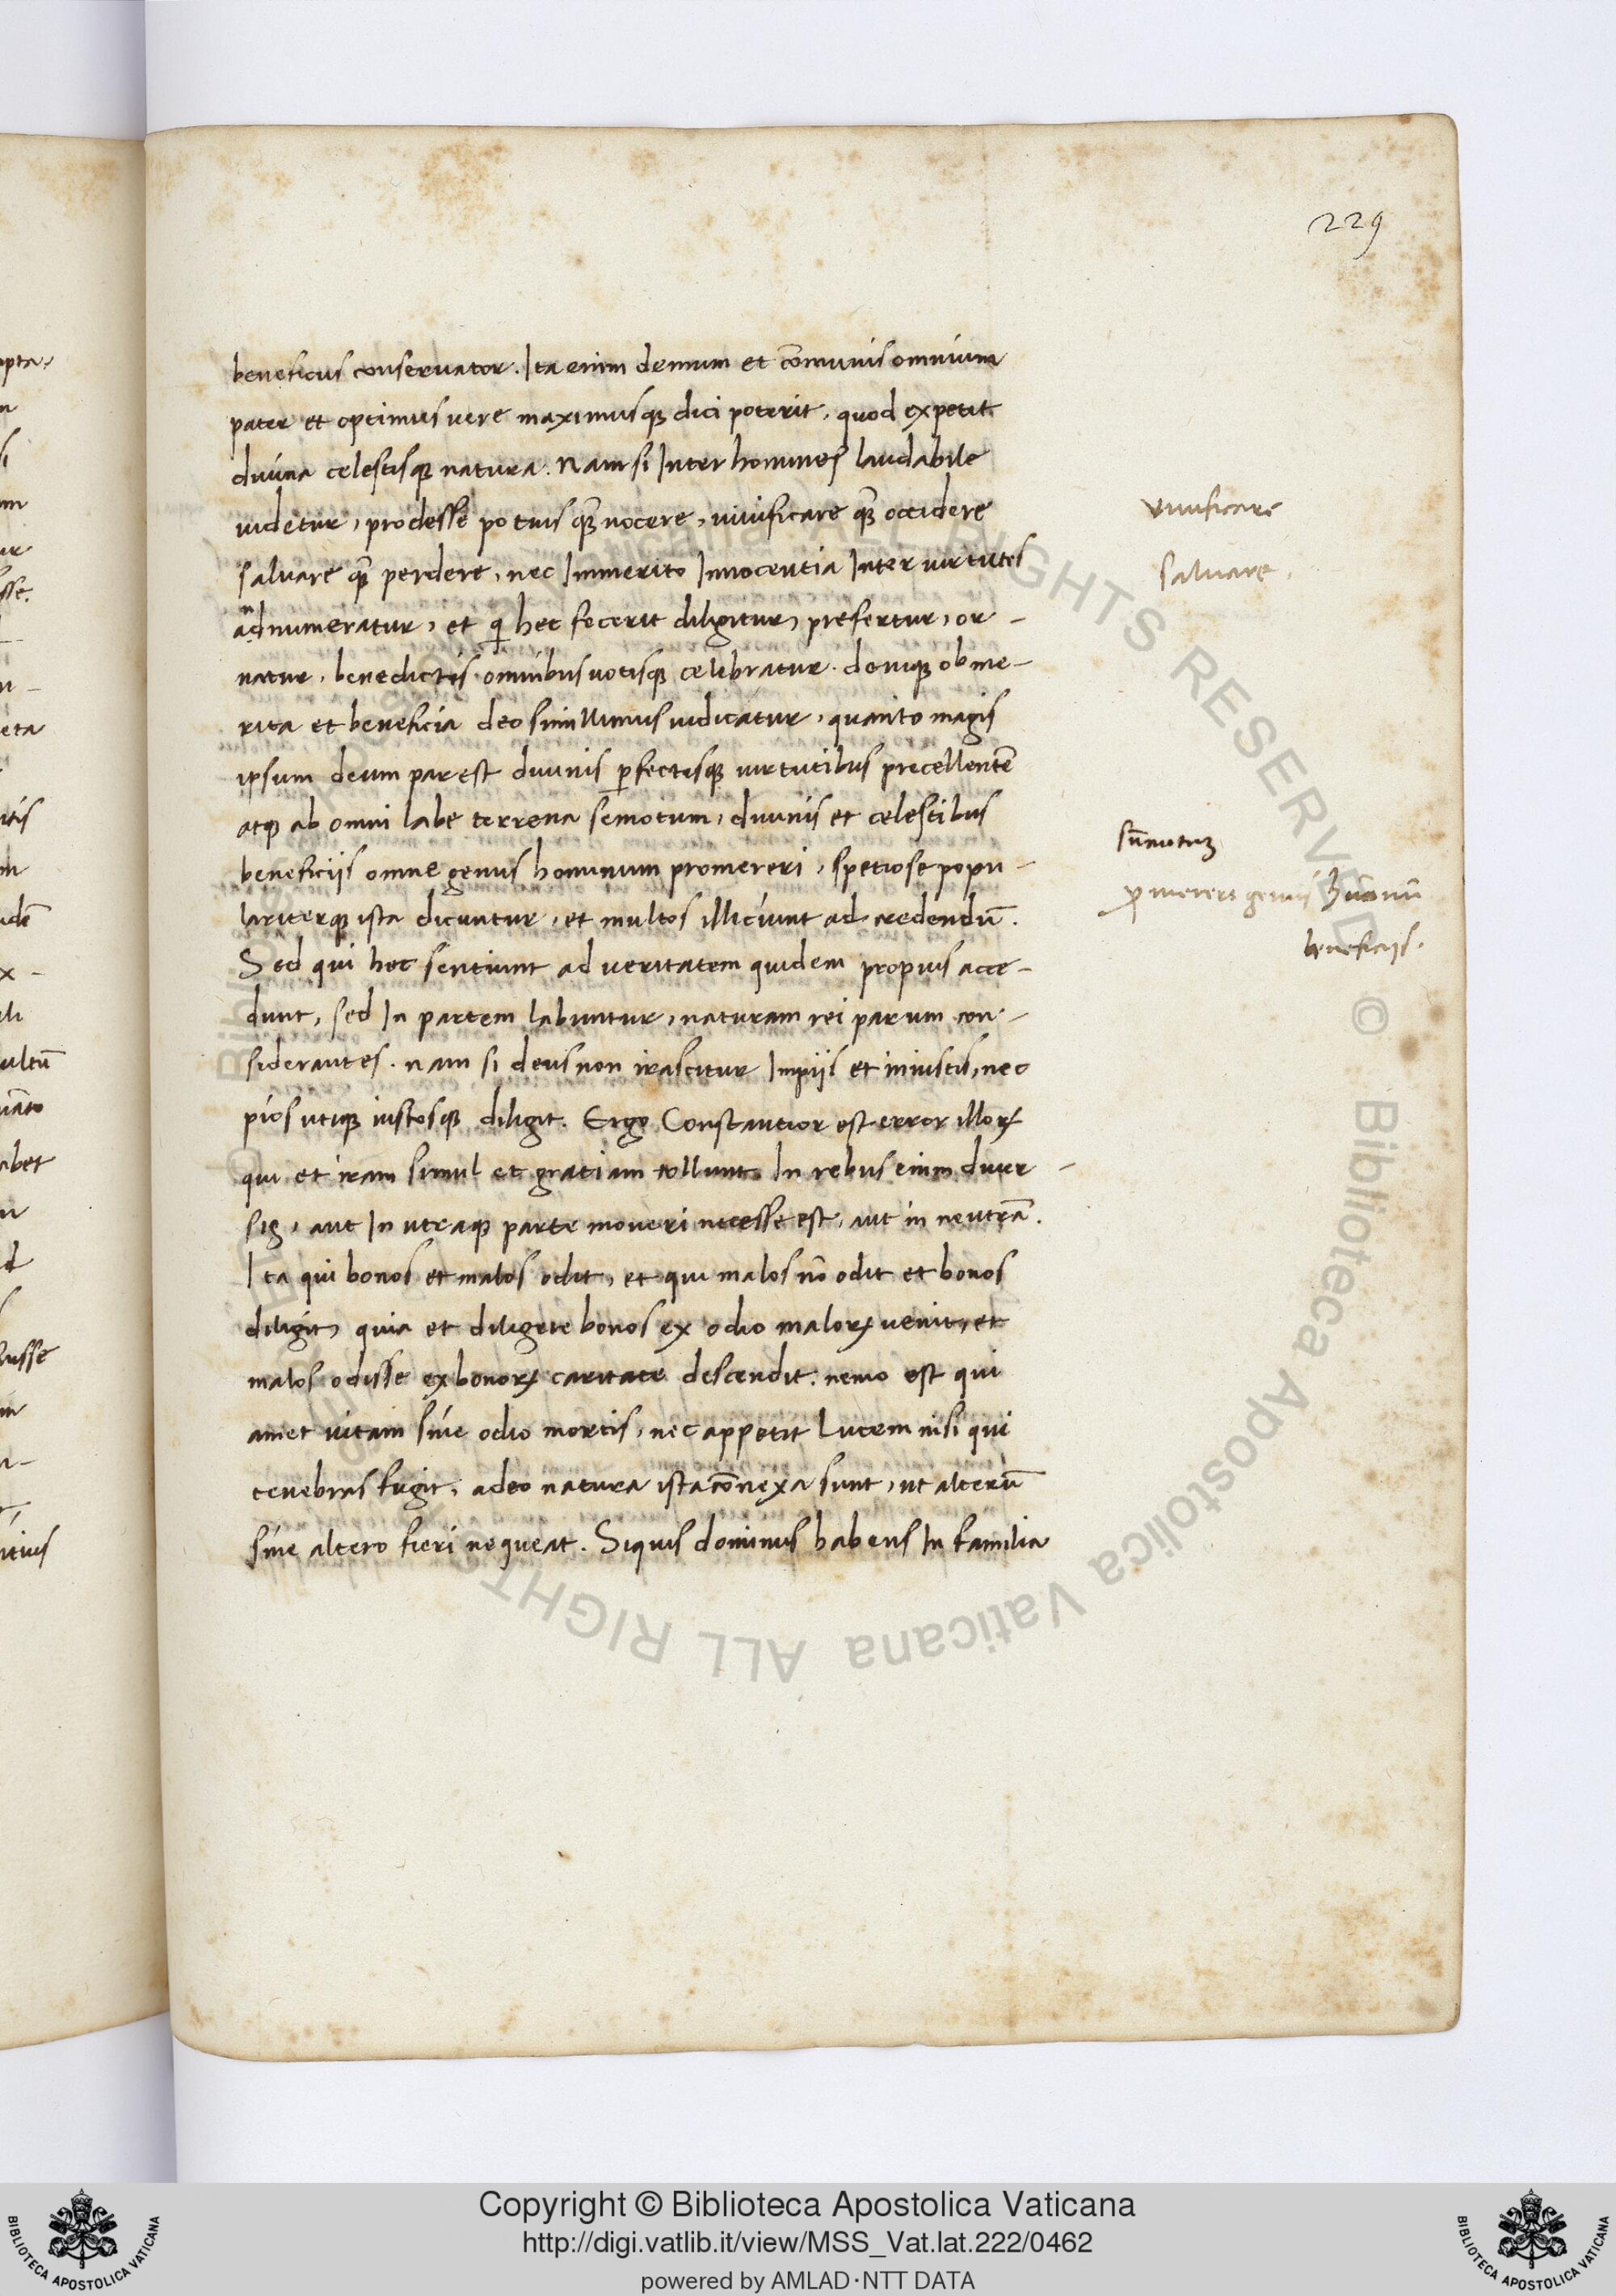 229
beneficus conseruator. Ita enim demum et cōmunis omnium
pater et optimus vere maximusqꝫ dici poterit, quod expetit
diuina celestisqꝫ natura. Nam si Inter homines laudabile
uidetur, prodesse potius qꝫ̄ nocere, uiuificare qꝫ̄ occidere
saluare qꝫ̄ perdere, nec Immerito Innocentia Inter uirtutes
adnumeratur, et qi hec fecerit diligitur, prefertur, or-
natur, benedictis omnibus uotisqꝫ celebratur. deniqꝫ ob me-
rita et beneficia deo simillimus iudicatur, quanto magis
ipsum deum par est diuinis ꝑfectisqꝫ uirtutibus precellentē
atqꝫ ab omni labe terrena semotum, diuinis et celestibus
beneficijs omne genus hominum promereri, spetiose popu-
lariterqꝫ ista dicuntur, et multos illiciunt ad credendū.
Sed qui hec sentiunt ad ueritatem quidem propius acce-
dunt, sed In partem labuntur, naturam rei parum con-
siderantes. nam si deus non irascitur Impijs et iniustis, nec
pios utiqꝫ iustosqꝫ diligit. Ergo Constantior est error illoꝝ
qui et iram simul et gratiam tollunt. In rebus enim diuer-
sis, aut In utraqꝫ parte moueri necesse est, aut in neutrā.
Ita qui bonos et malos odit, et qui malos nō odit et bonos
diligit, quia et diligere bonos ex odio maloꝝ uenit, et
malos odisse ex bonoꝝ caritate descendit. nemo est qui
amet uitam sine odio mortis, nec appetit Lucem nisi qui
tenebras fugit, adeo natura ista cōnexa sunt, ut alterū
sine altero fieri nequeat. Siquis dominus habens In familia
viuificare
saluare
ꝓmereri genus huānū
beneficijs.
© Biblioteca Apostolica Vaticana ALL RIGHTS RESERVED
Copyright © Biblioteca Apostolica Vaticana
http://digi.vatlib.it/view/MSS_Vat.lat.222/0462
powered by AMLAD·NTT DATA
BIBLIOTECA APOSTOLICA VATICANA
BIBLIOTECA APOSTOLICA VATICANA